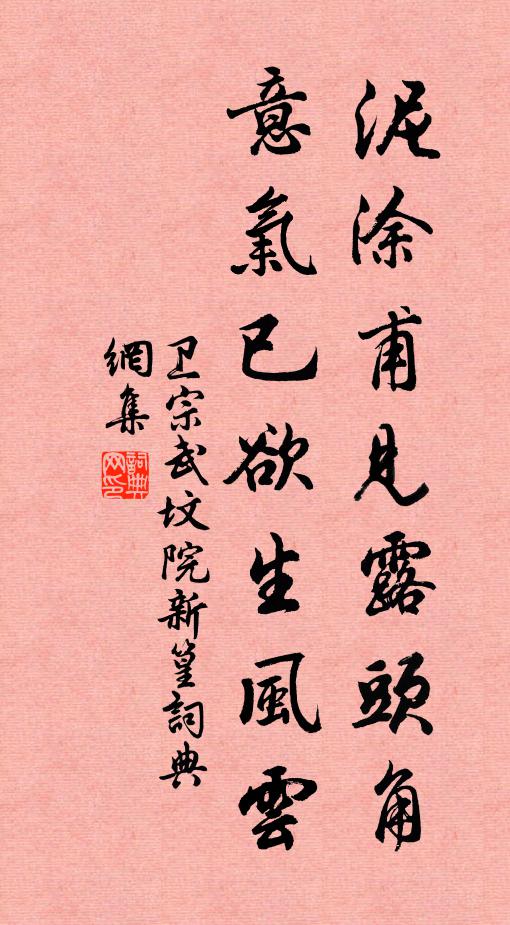 泥涂甫见露頭角
意氣已欲生風雲
卫宗武坟院新篁詞典
網集
詞典网印